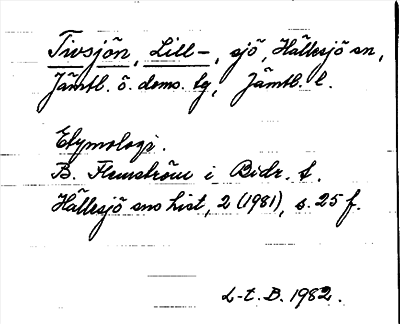 Tivsjön, Lill-, sjö, Hällesjö sn,
Jämtl. ö. doms. tg, Jämtl. l.
Etymologi.
B. Flemström i Bidr. t.
Hällesjö sns hist, 2 (1981), s. 25 f.
L-t. B. 1982.